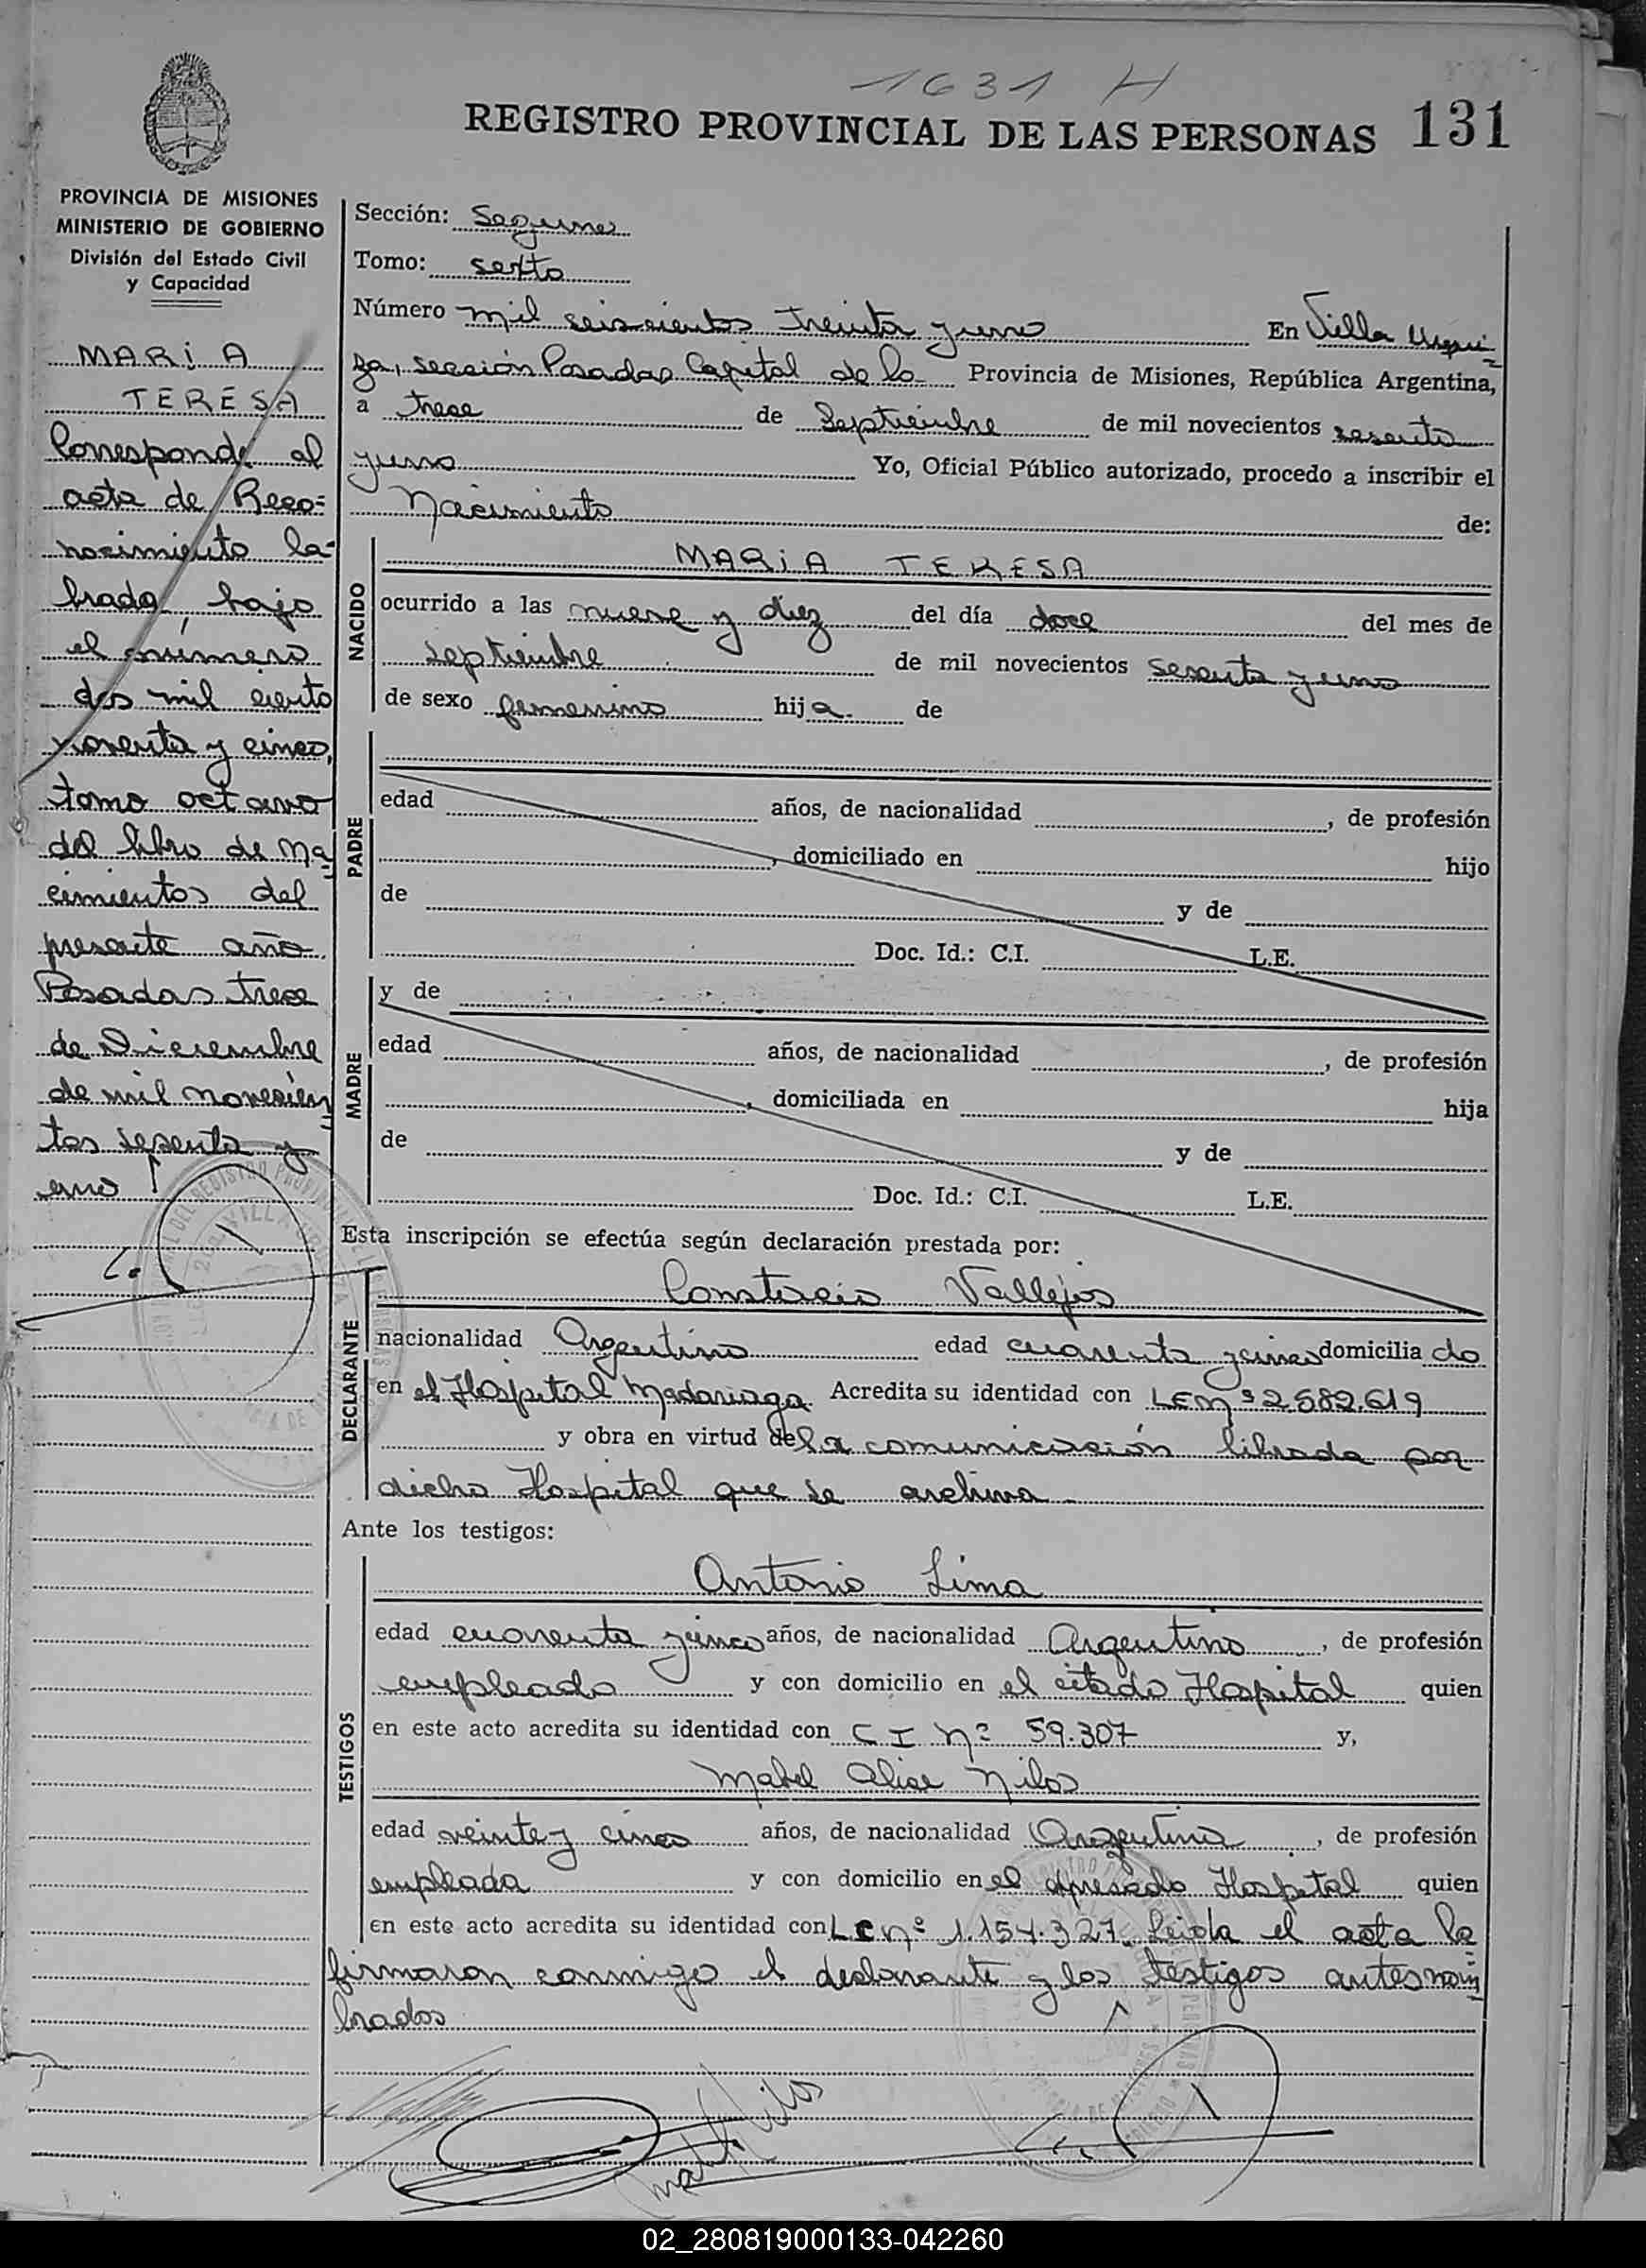 1631 H
REGISTRO PROVINCIAL DE LAS PERSONAS 131
PROVINCIA DE MISIONES
MINISTERIO DE GOBIERNO
División del Estado Civil
y Capacidad
MARIA
TERESA
Corresponde al
acta de Reco-
nocimiento la-
brada, bajo
el número
dos mil ciento
noventa y cinco,
tomo octavo
del libro de Na
cimientos del
presente año.
Posadas trece
de Diciembre
de mil novecien
tos sesenta y
uno
Sección: Segunda
Tomo: sexto
Número mil seiscientos treinta y uno En Villa Urqui-
za, sección Posadas Capital de la Provincia de Misiones, República Argentina,
a trece de Septiembre de mil novecientos sesenta
y uno Yo, Oficial Público autorizado, procedo a inscribir el
Nacimiento de:
NACIDO
MARIA TERESA
ocurrido a las nueve y diez del día doce del mes de
septiembre de mil novecientos sesenta y uno
de sexo femenino hija de
PADRE
edad años, de nacionalidad , de profesión
, domiciliado en hijo
de y de
Doc. Id.: C.I. L.E.
MADRE
y de
edad años, de nacionalidad , de profesión
, domiciliada en hija
de y de
Doc. Id.: C.I. L.E.
Esta inscripción se efectúa según declaración prestada por:
DECLARANTE
Vallejos
nacionalidad Argentino edad cuarenta y cinco domiciliado
en el Hospital Madariaga. Acredita su identidad con LE Nº 2.582.619
y obra en virtud de la comunicación librada por
dicho Hospital que se archiva
Ante los testigos:
TESTIGOS
Antonio Lima
edad cuarenta y cinco años, de nacionalidad Argentino, de profesión
empleado y con domicilio en el citado Hospital quien
en este acto acredita su identidad con C I Nº 59.307 y,
Mabel Alice Nilos
edad veinte y cinco años, de nacionalidad Argentina, de profesión
empleada y con domicilio en el Hospital quien
en este acto acredita su identidad con LC nº 1.154.327. Leida el acta la
firmaron conmigo el declarante y los testigos antesnom
brados
02_280819000133-042260